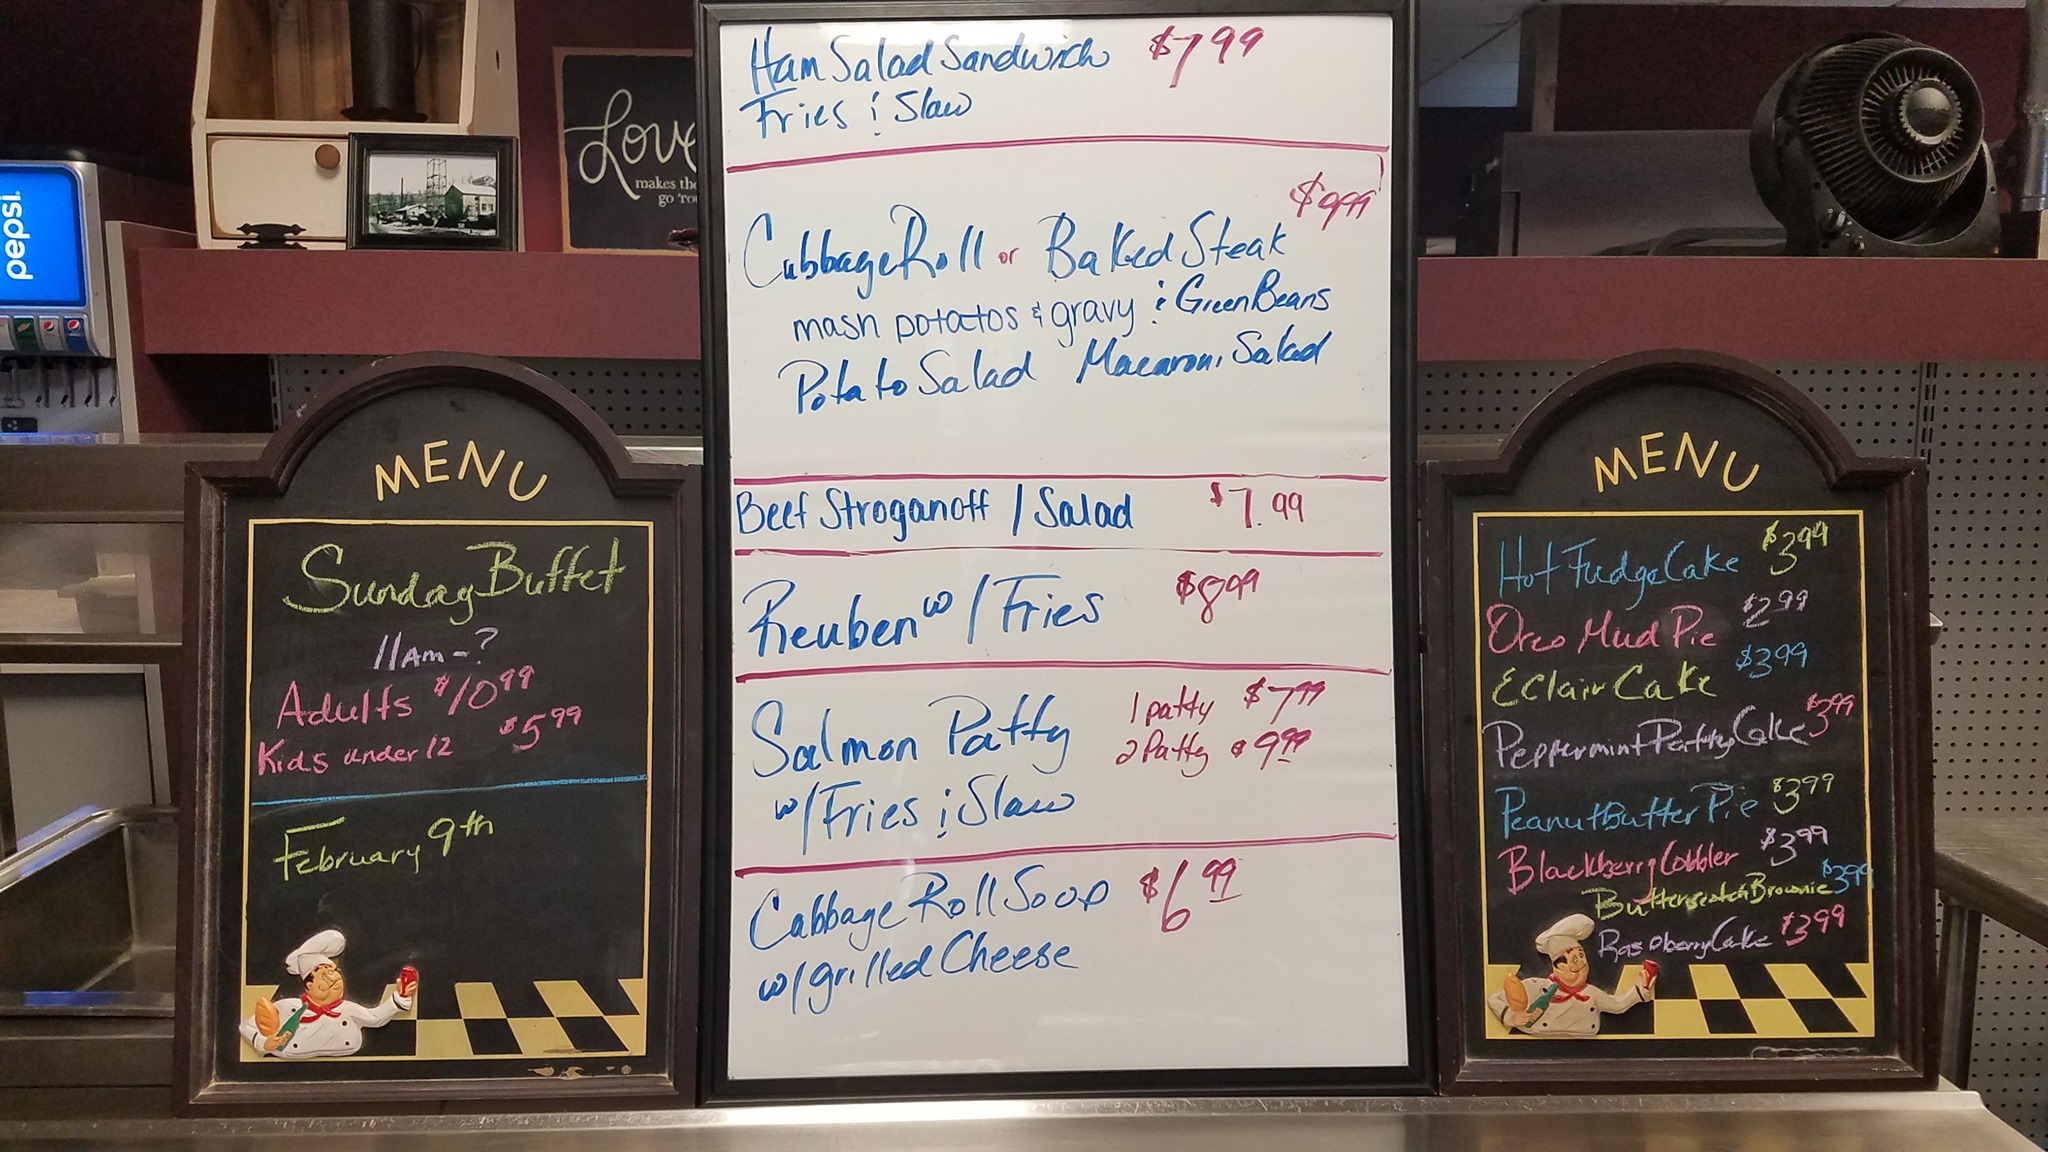 pepsi
Love
makes the
MENU
Sunday Buffet
11 Am - ?
Adults $10.99
Kids under 12 $5.99
February 9th
Ham Salad Sandwich $7.99
Fries & Slaw
$9.99
Cabbage Roll or Baked Steak
mash potatos & gravy & Green Beans
Potato Salad Macaroni Salad
Beef Stroganoff / Salad $7.99
Reuben w/ Fries $8.99
Salmon Patty 1 patty $7.99
2 Patty $9.99
w/ Fries & Slaw
Cabbage Roll Soup $6.99
w/ grilled Cheese
MENU
Hot Fudge Cake $3.99
Oreo Mud Pie $2.99
Eclair Cake $3.99
Peppermint Patty Cake $3.99
Peanut Butter Pie $3.99
Blackberry Cobbler $3.99
Butterscotch Brownie $3.99
Raspberry Cake $3.99